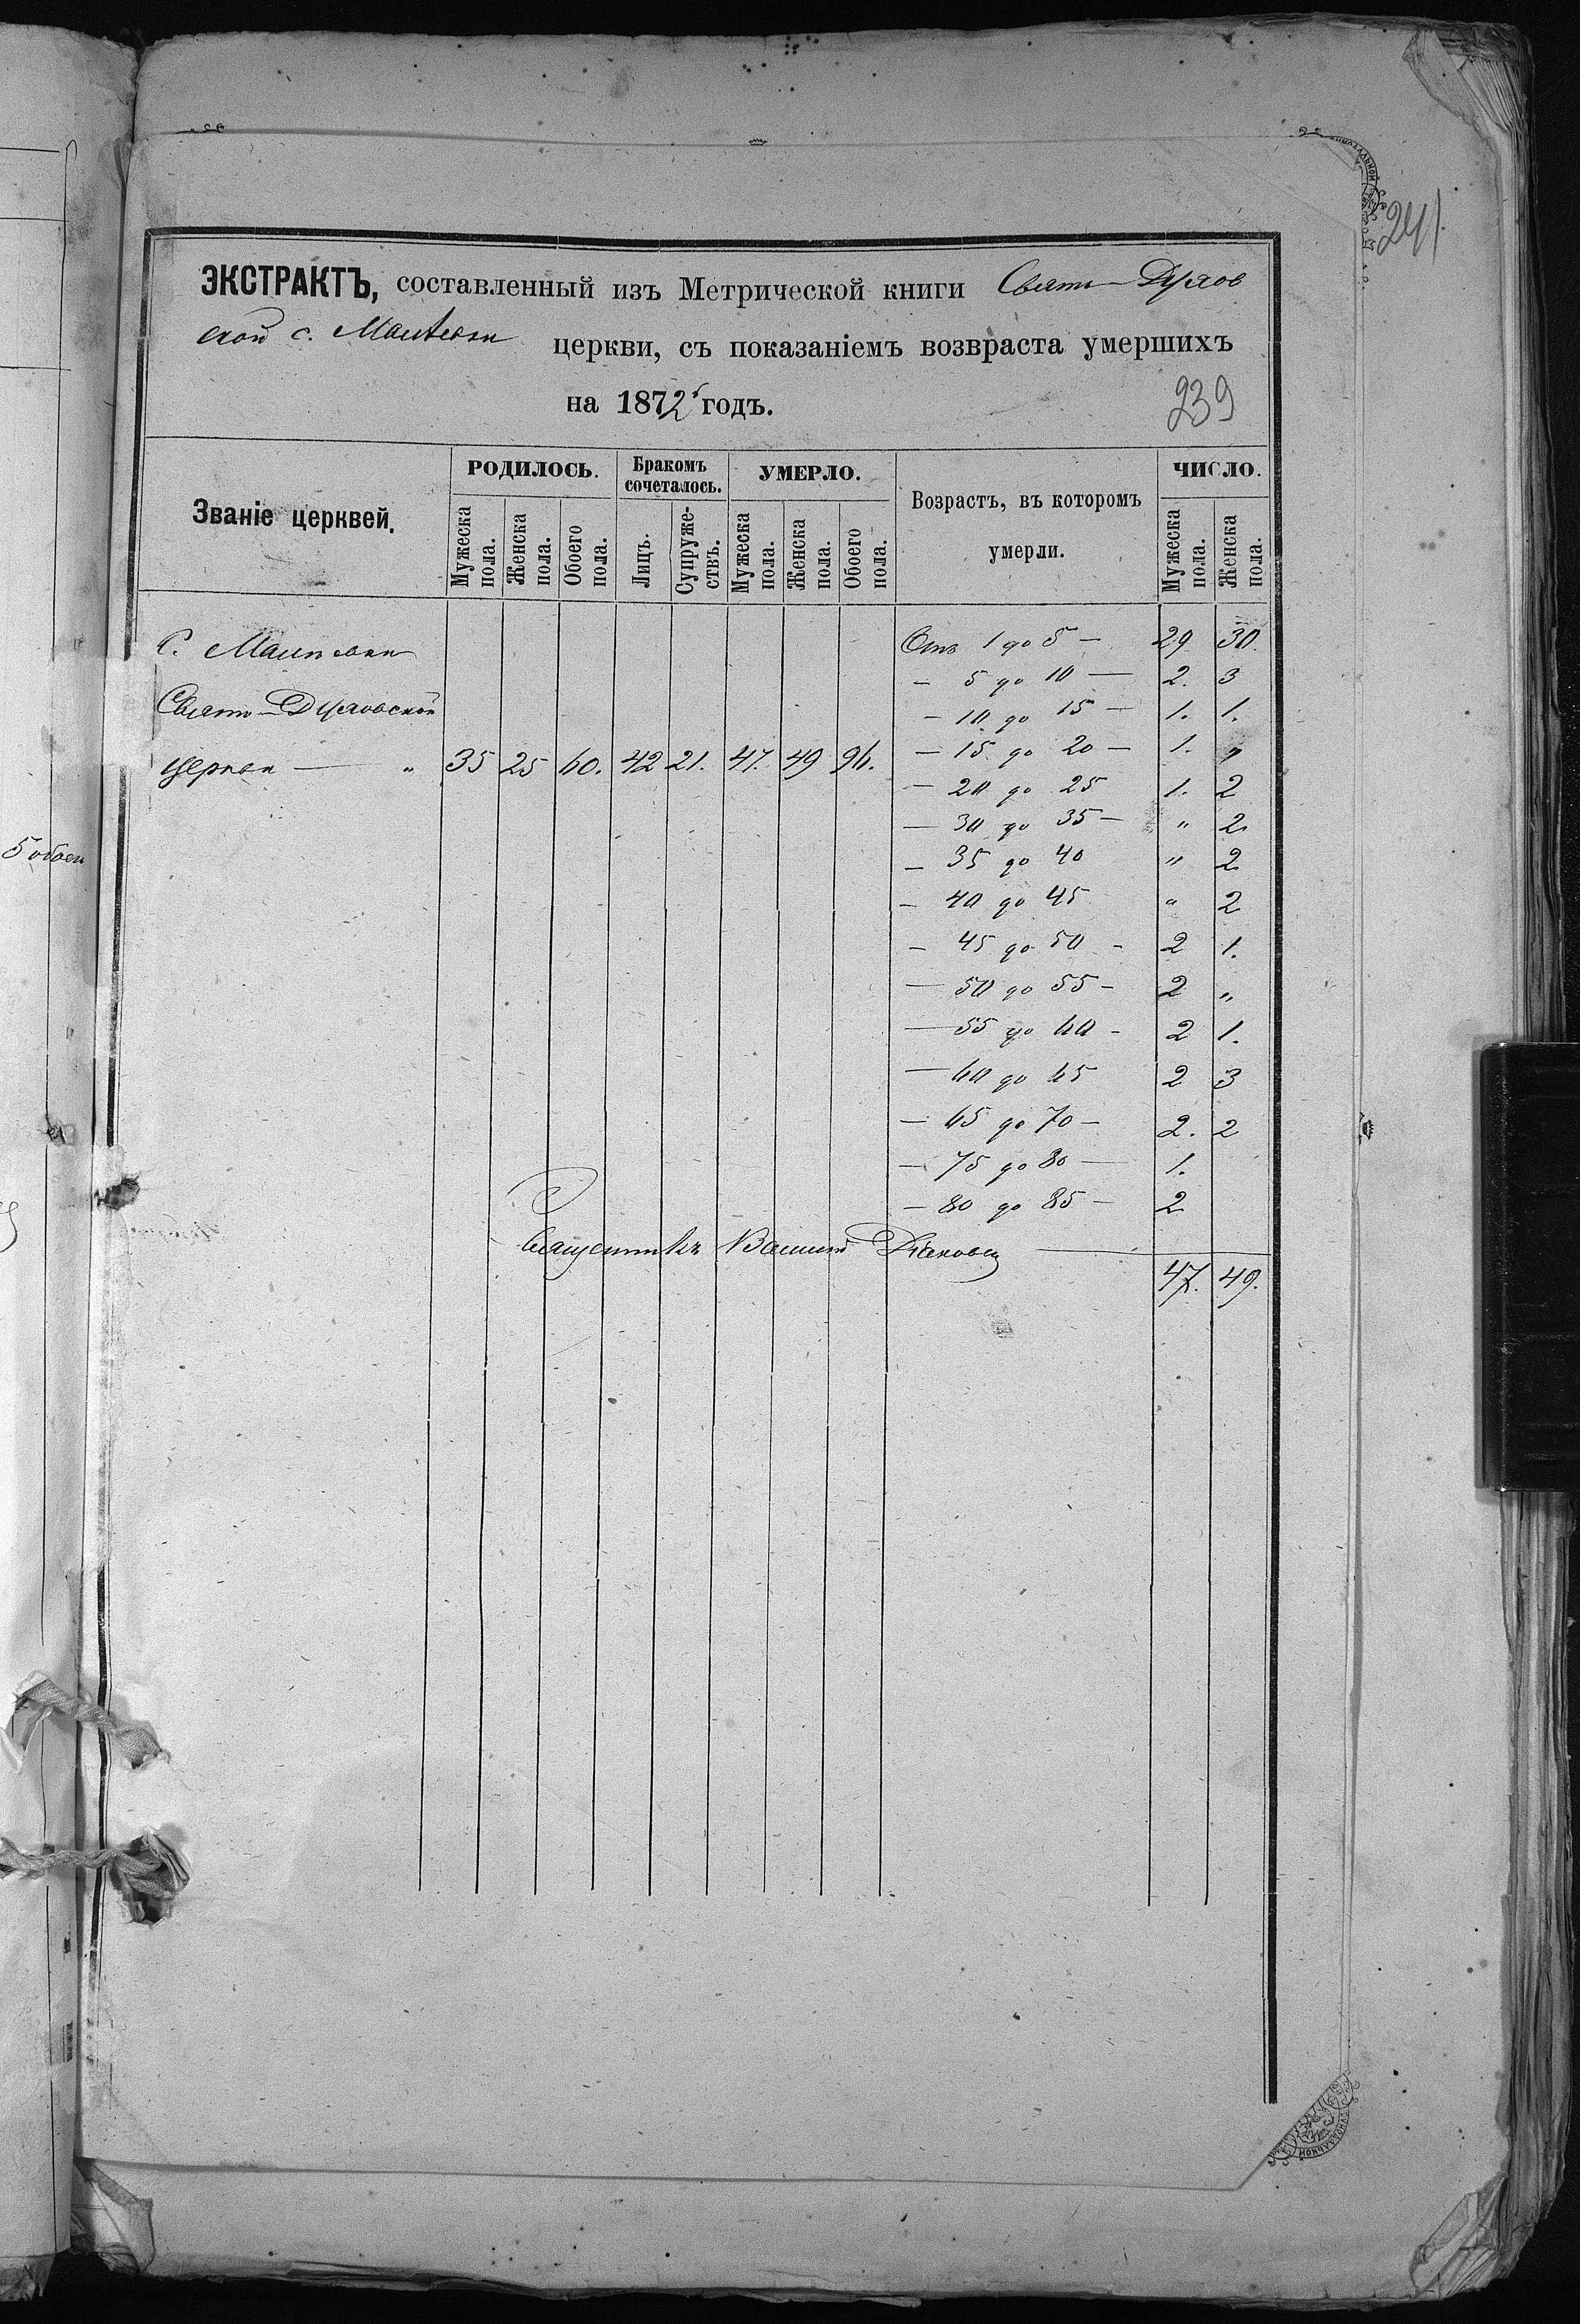 241
ЭКСТРАКТЪ, составленный изъ Метрической книги Свято-Духов
ской с. Маліевки церкви, съ показаніемъ возвраста умершихъ
на 1872 годъ.
239
Званіе церквей.
РОДИЛОСЬ.
Бракомъ сочеталось.
УМЕРЛО.
Возрастъ, въ которомъ умерли.
ЧИСЛО.
Мужеска пола.
Женска пола.
Обоего пола.
Лицъ.
Супруже-ствъ.
Мужеска пола.
Женска пола.
Обоего пола.
Мужеска пола.
Женска пола.
С.
Свято-Духовской
церкви — " 35 25 60. 42 21. 47. 49 96.
Отъ 1 до 5 — 29 30.
— 5 до 10 — 2. 3
— 10 до 15 — 1. 1.
— 15 до 20 — 1. "
— 20 до 25 1. 2
— 30 до 35 — " 2
— 35 до 40 " 2
— 40 до 45 " 2
— 45 до 50 - 2 1.
— 50 до 55 - 2 "
— 55 до 60 - 2 1.
— 60 до 65 2 3
— 65 до 70 — 2. 2
— 75 до 80 — 1.
— 80 до 85 — 2
Священникъ Василій
47. 49.
5 обоего